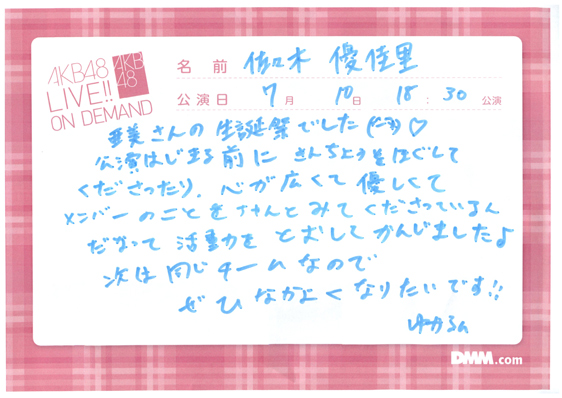 AKB48
LIVE!!
ON DEMAND
AKB
48
名前 佐々木 優佳里
公演日 7月 10日 18:30 公演
亜美さんの生誕祭でした
公演はじまる前に きんちょうをほぐして
くださったり、心が広くて優しくて
メンバーのことをちゃんとみてくださっているん
だなって 活動を とおして かんじましたよ
次は同じチームなので
ぜひ なかよく なりたいです!!
ゆかるん
DMM.com